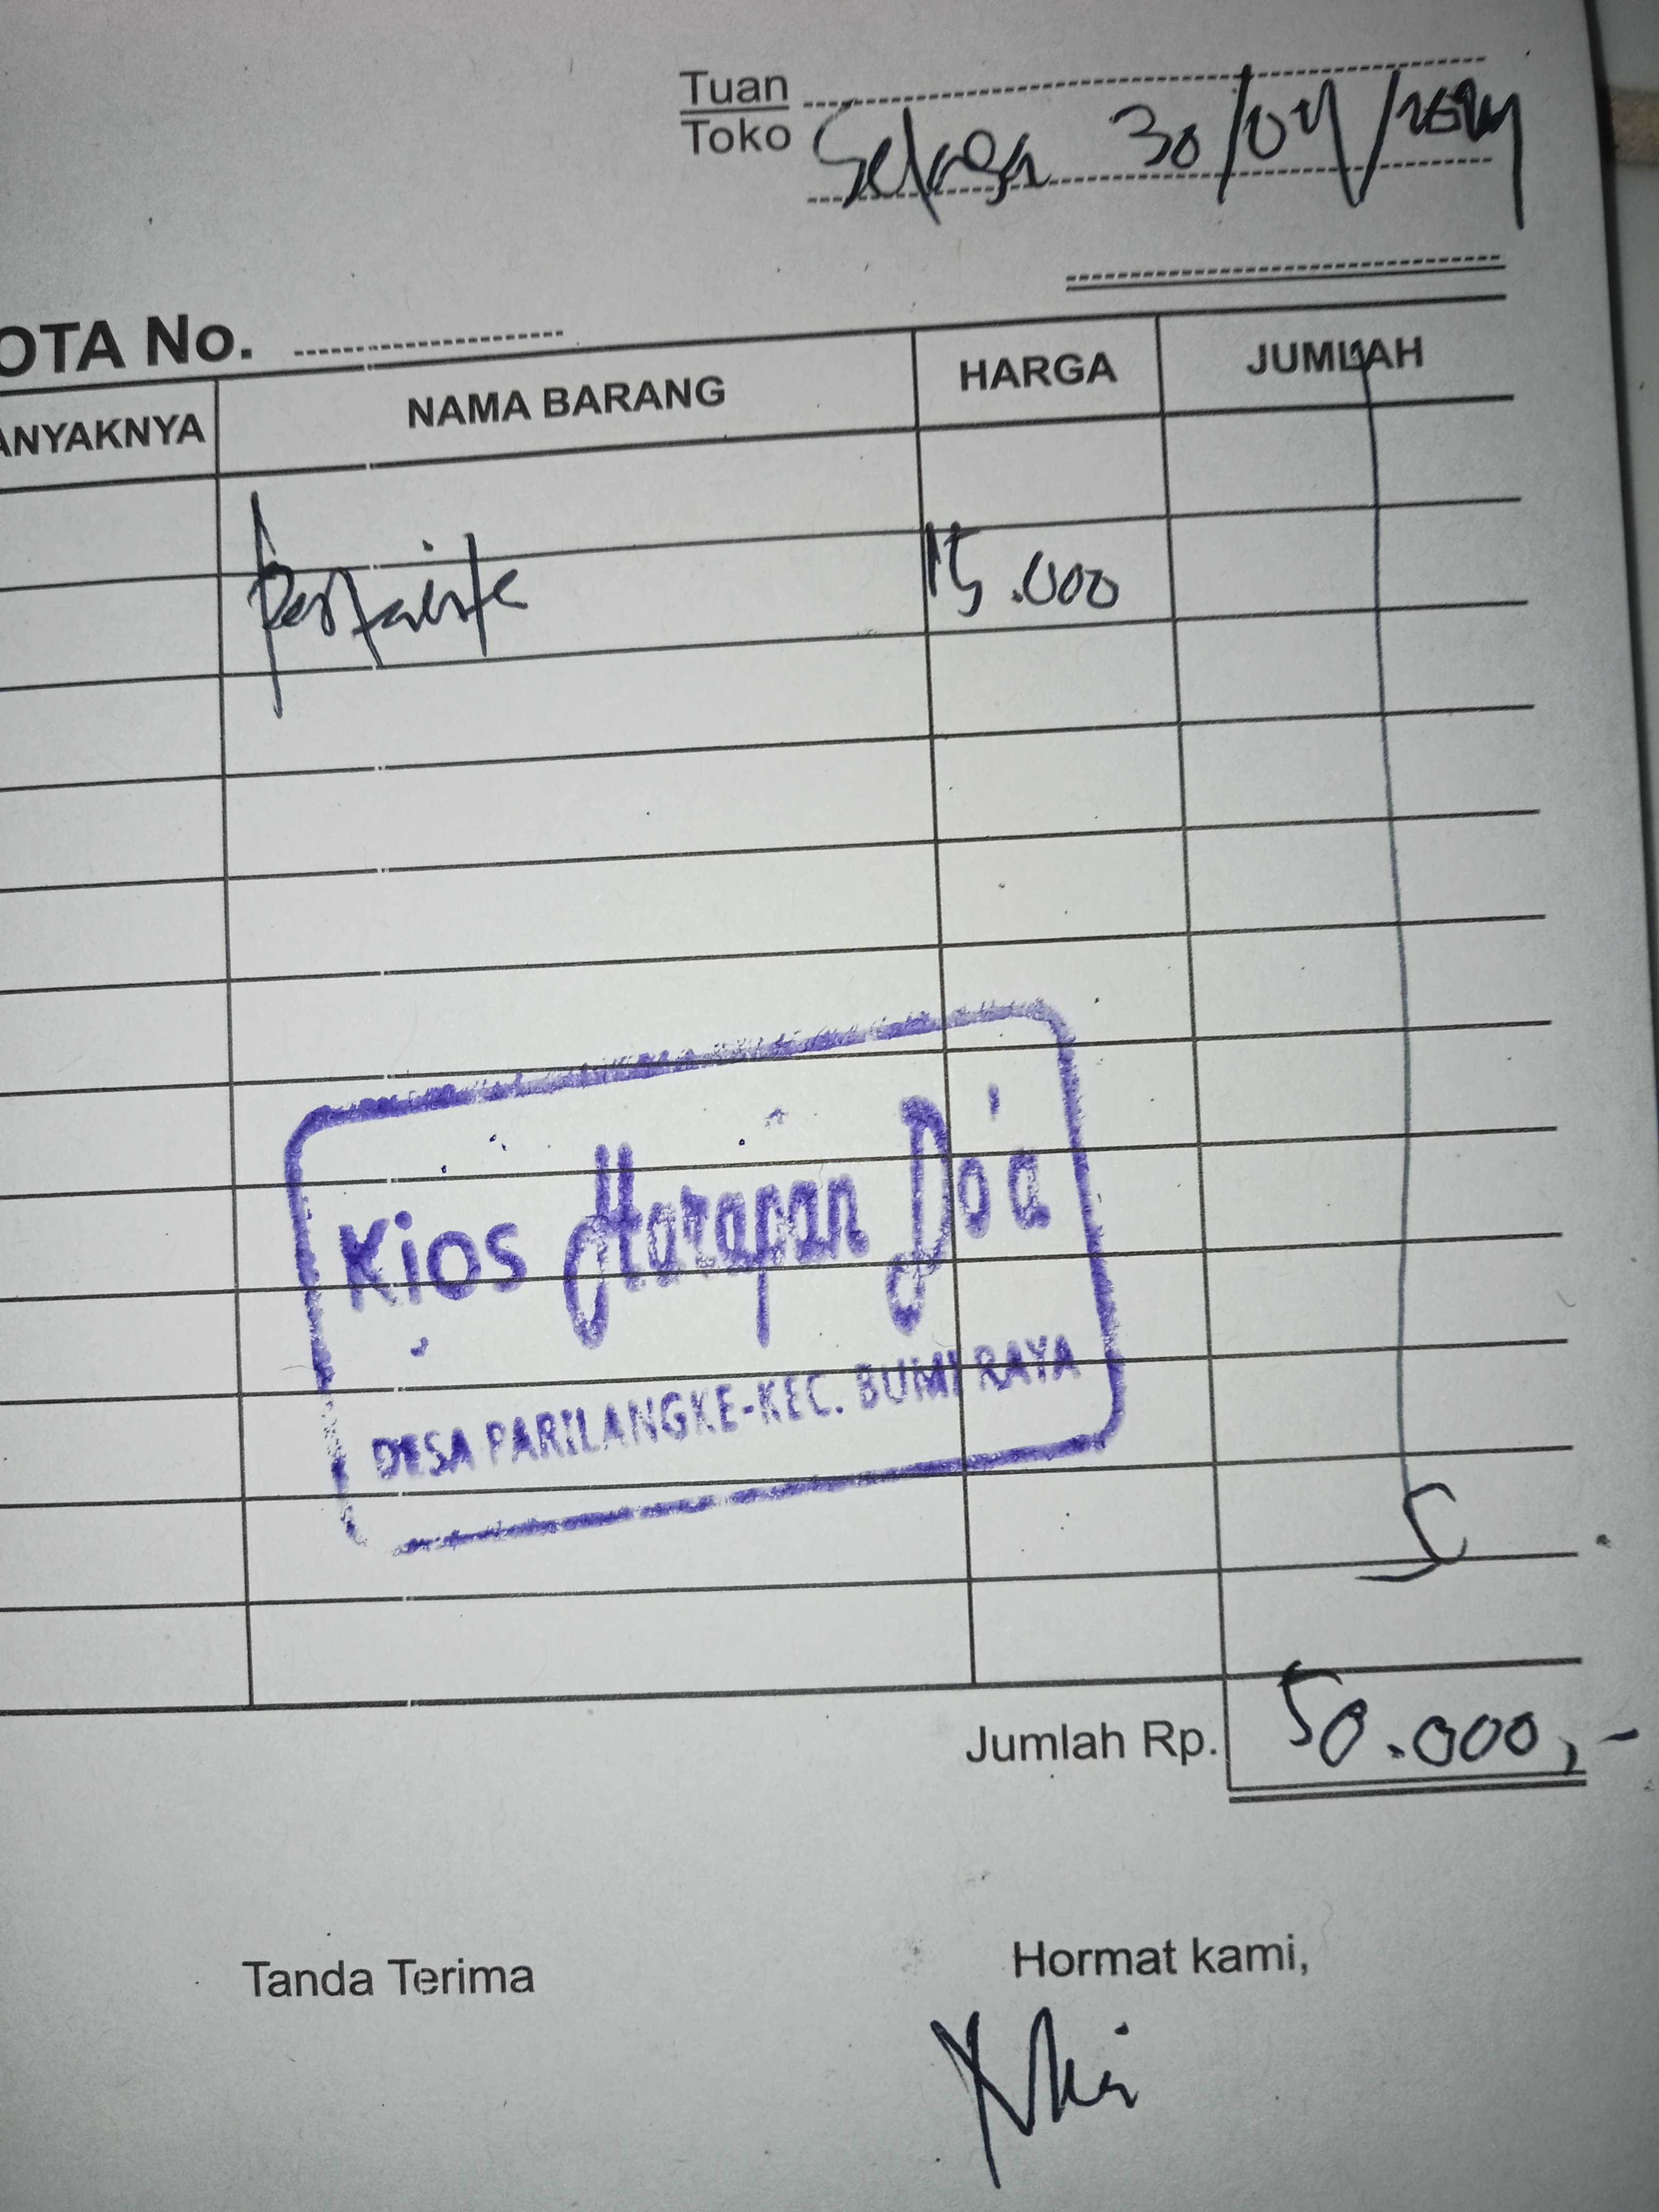 Tuan
Toko
Selasa 30/04/2024
OTA No.
ANYAKNYA NAMA BARANG HARGA JUMLAH
Pertalite 15.000
Kios Harapan Do'a
DESA PARILANGKE-KEC. BUMI RAYA
Jumlah Rp. 50.000,-
Tanda Terima Hormat kami,